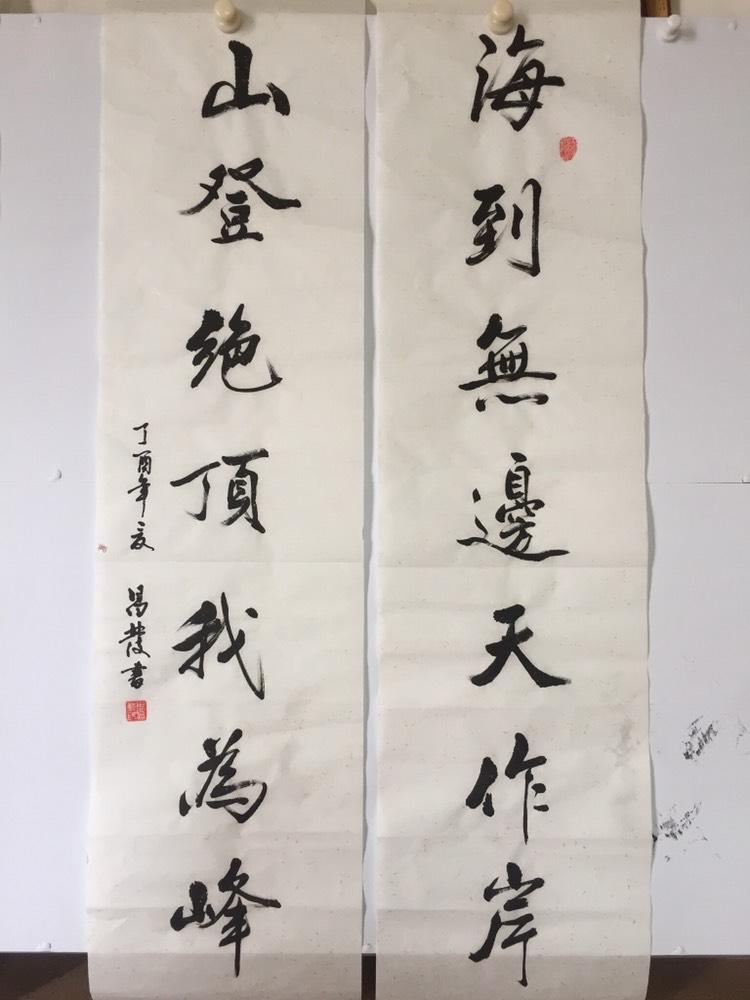 海到無邊天作岸
山登絶頂我為峰
丁酉年夏 昌發書